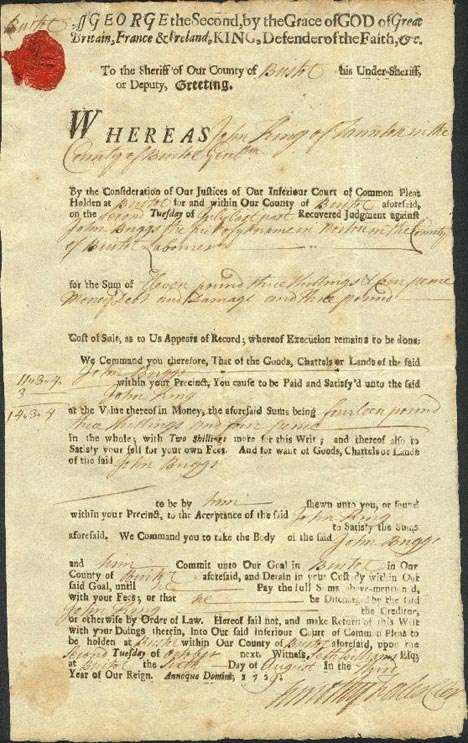 Bristol ss GEORGE the Second, by the Grace of GOD of Great
Britain, France & Ireland, KING, Defender of the Faith, &c.
To the Sheriff of Our County of Bristol his Under-Sheriff,
or Deputy, Greeting.
WHEREAS John King of Taunton in the
County of Bristol Gentm
By the Consideration of Our Justices of Our Inferiour Court of Common Pleas
Holden at Bristol for and within Our County of Bristol aforesaid,
on the Second Tuesday of July last past Recovered Judgment against
John Briggs in Norton in the County
of Bristol Labourer
for the Sum of Eleven pound three Shillings & four pence
Money Debt and Damage and three pound
Cost of Suit, as to Us Appears of Record; whereof Execution remains to be done:
We Command you therefore, That of the Goods, Chattels or Lands of the said
John Briggs
11-03-4
within your Precinct, You cause to be Paid and Satisfy'd unto the said
3
John King
14-3-4
at the Value thereof in Money, the aforesaid Sums being fourteen pound
three Shillings and four pence
In the whole; with Two Shillings more for this Writ; and thereof also to
Satisfy your self for your own Fees. And for want of Goods, Chattels or Lands
of the said John Briggs
to be by him shewn unto you, or found
within your Precinct, to the Acceptance of the said John King
to Satisfy the Sums
aforesaid. We Command you to take the Body of the said John Briggs
and him Commit unto Our Goal in Bristol in Our
County of Bristol aforesaid, and Detain in your Custody within Our
said Goal, until he Pay the full Sums above-mentioned,
with your Fees; or that he be Discharged by the said
John King the Creditor,
or otherwise by Order of Law. Hereof fail not, and make Return of this Writ
with your Doings therein, Into Our said inferiour Court of Common Pleas to
be holden at Bristol within Our County of Bristol aforesaid, upon the
Second Tuesday of October next. Witness, Seth Williams Esq;
at Bristol the Sixth Day of August In the Third
Year of Our Reign. Annoque Domini, 1729